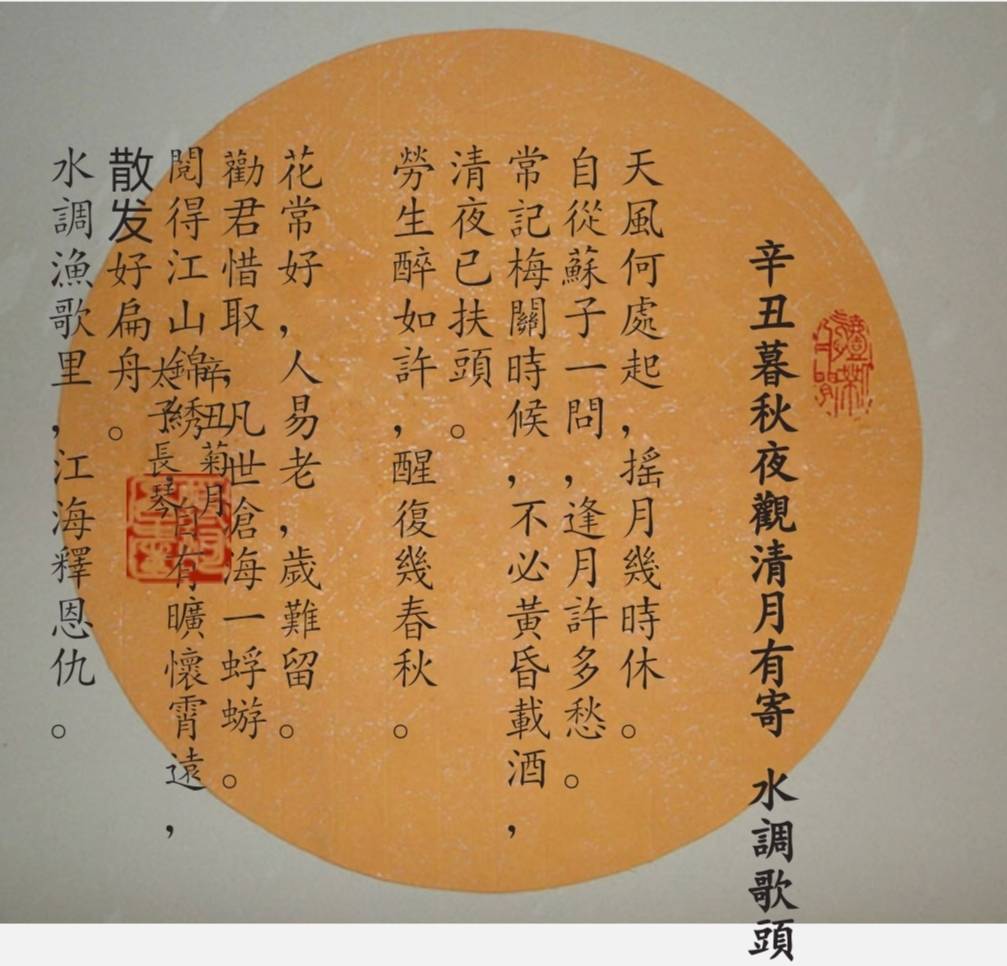 辛丑暮秋夜觀清月有寄 水調歌頭
天風何處起,摇月幾時休。
自從蘇子一問,逢月許多愁。
常記梅關時候,不必黃昏載酒,
清夜已扶頭。
勞生醉如許,醒復幾春秋。
花常好,人易老,歲難留。
勸君惜取,凡世滄海一蜉蝣。
閱得江山錦綉,自有曠懷霄遠,
散发好扁舟。
水調漁歌里,江海釋恩仇。
辛丑菊月
太子長琴